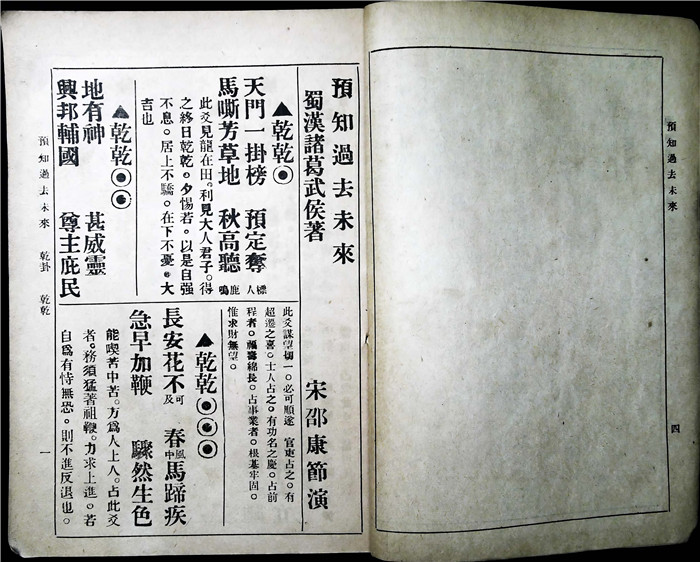 預知過去未來
四
預知過去未來
蜀漢諸葛武侯著 宋邵康節演
▲乾乾⦿
天門一掛榜 預定奪標人
馬嘶芳草地 秋高聽鹿鳴
此爻見龍在田。利見大人君子。得
之終日乾乾。夕惕若。以是自强
不息。居上不驕。在下不憂。大
吉也
▲乾乾⦿⦿
地有神 甚威靈
興邦輔國 尊主庇民
此爻謀望切一。必可順遂 官吏占之。有
超遷之喜。士人占之。有功名之慶。占前
程者。福壽綿長。占事業者。根基牢固。
惟求財無望。
▲乾乾⦿⦿⦿
長安花不可及 春風中馬蹄疾
急早加鞭 驟然生色
能喫苦中苦。方爲人上人。占此爻
者。務須猛著祖鞭。力求上進。若
自爲有恃無恐。則不進反退也。
預知過去未來 乾卦 乾乾 一